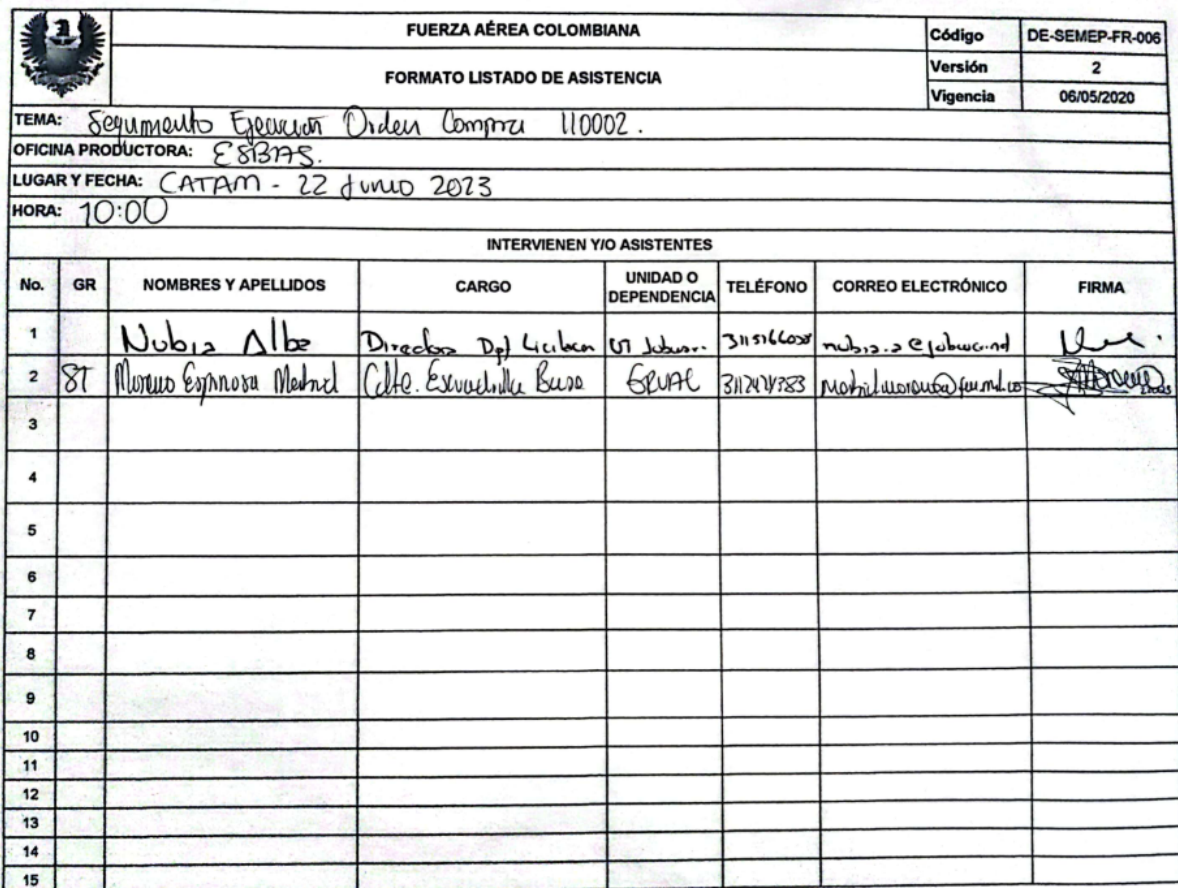 FUERZA AÉREA COLOMBIANA
FORMATO LISTADO DE ASISTENCIA
Código DE-SEMEP-FR-006
Versión 2
Vigencia 06/05/2020
TEMA: Seguimiento Ejecución Orden Compra 110002.
OFICINA PRODUCTORA: ESBAS.
LUGAR Y FECHA: CATAM - 22 Junio 2023
HORA: 10:00
INTERVIENEN Y/O ASISTENTES
No. GR NOMBRES Y APELLIDOS CARGO UNIDAD O DEPENDENCIA TELÉFONO CORREO ELECTRÓNICO FIRMA
1 Nubia Alba Directora Dpt UT
2 ST Moreno Espinosa Cdte. Escuadrilla Base GRUAL
3
4
5
6
7
8
9
10
11
12
13
14
15